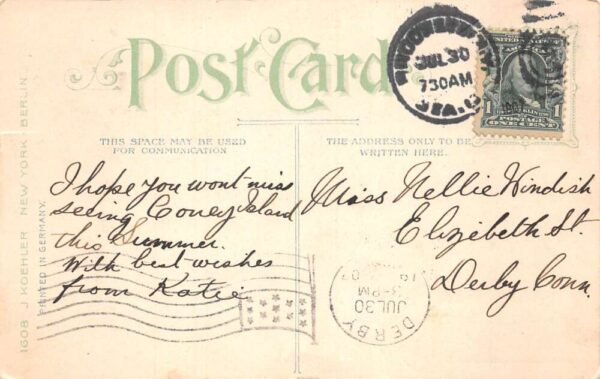 Post Card
JUL 30
7 30 AM
1
POSTAGE
ONE CENT
THIS SPACE MAY BE USED
FOR COMMUNICATION
THE ADDRESS ONLY TO BE
WRITTEN HERE.
I hope you wont miss
seeing Coney island
this Summer.
With best wishes
from Katie
Miss Nellie Windish
Elizebeth St.
Derby Conn.
DERBY
JUL 30
3-PM
1608 J. KOEHLER NEW YORK BERLIN.
PRINTED IN GERMANY.